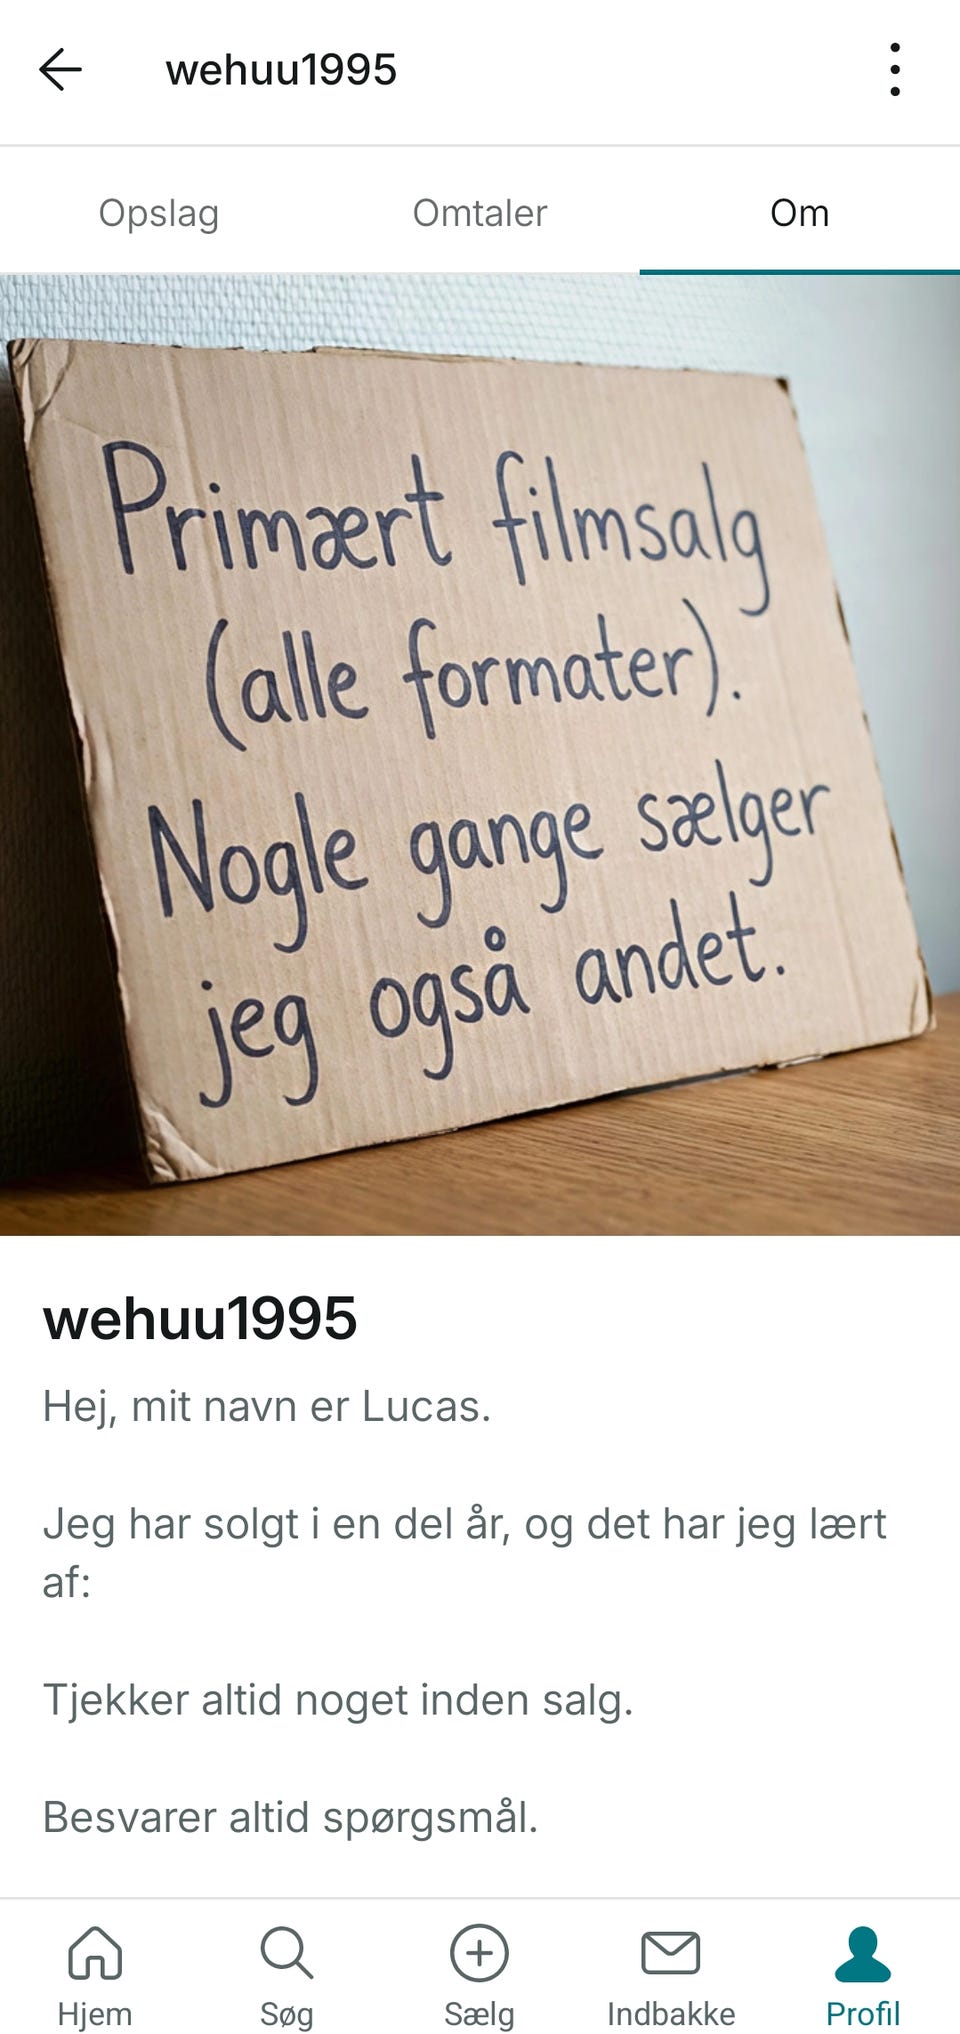 wehuu1995
Opslag
Omtaler
Om
Primært filmsalg
(alle formater).
Nogle gange sælger
jeg også andet.
wehuu1995
Hej, mit navn er Lucas.
Jeg har solgt i en del år, og det har jeg lært
af:
Tjekker altid noget inden salg.
Besvarer altid spørgsmål.
Hjem
Søg
Sælg
Indbakke
Profil